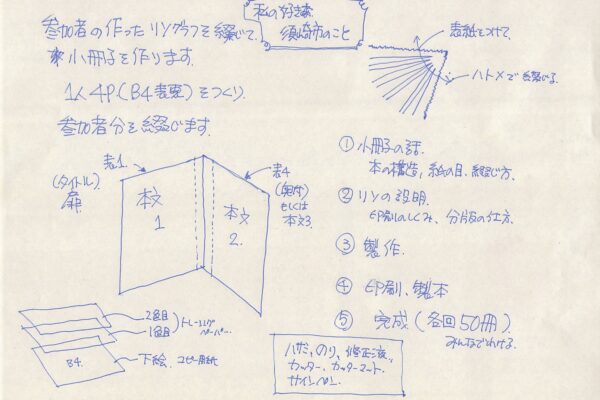 参加者の作ったリソグラフを綴じて、
小冊子を作ります。
1人4P(B4表裏)をつくり、
参加者分を綴じます。
私の好きな
須崎市のこと
表紙をつけて
ハトメで綴じる。
① 小冊子の話。
本の構造、紙の目、綴じ方。
② リソの説明。
印刷のしくみ、分版の仕方。
③ 製作。
④ 印刷、製本
⑤ 完成。(各回50冊)
みんなでわける。
表1.
(タイトル)
扉
本文
1
本文
2.
表4
(奥付)
もしくは
本文3.
2色目
1色目
トレーシング
ペーパー
B4.
下絵.コピー用紙
ハサミ、のり、修正液、
カッター、カッターマット、
サインペン.